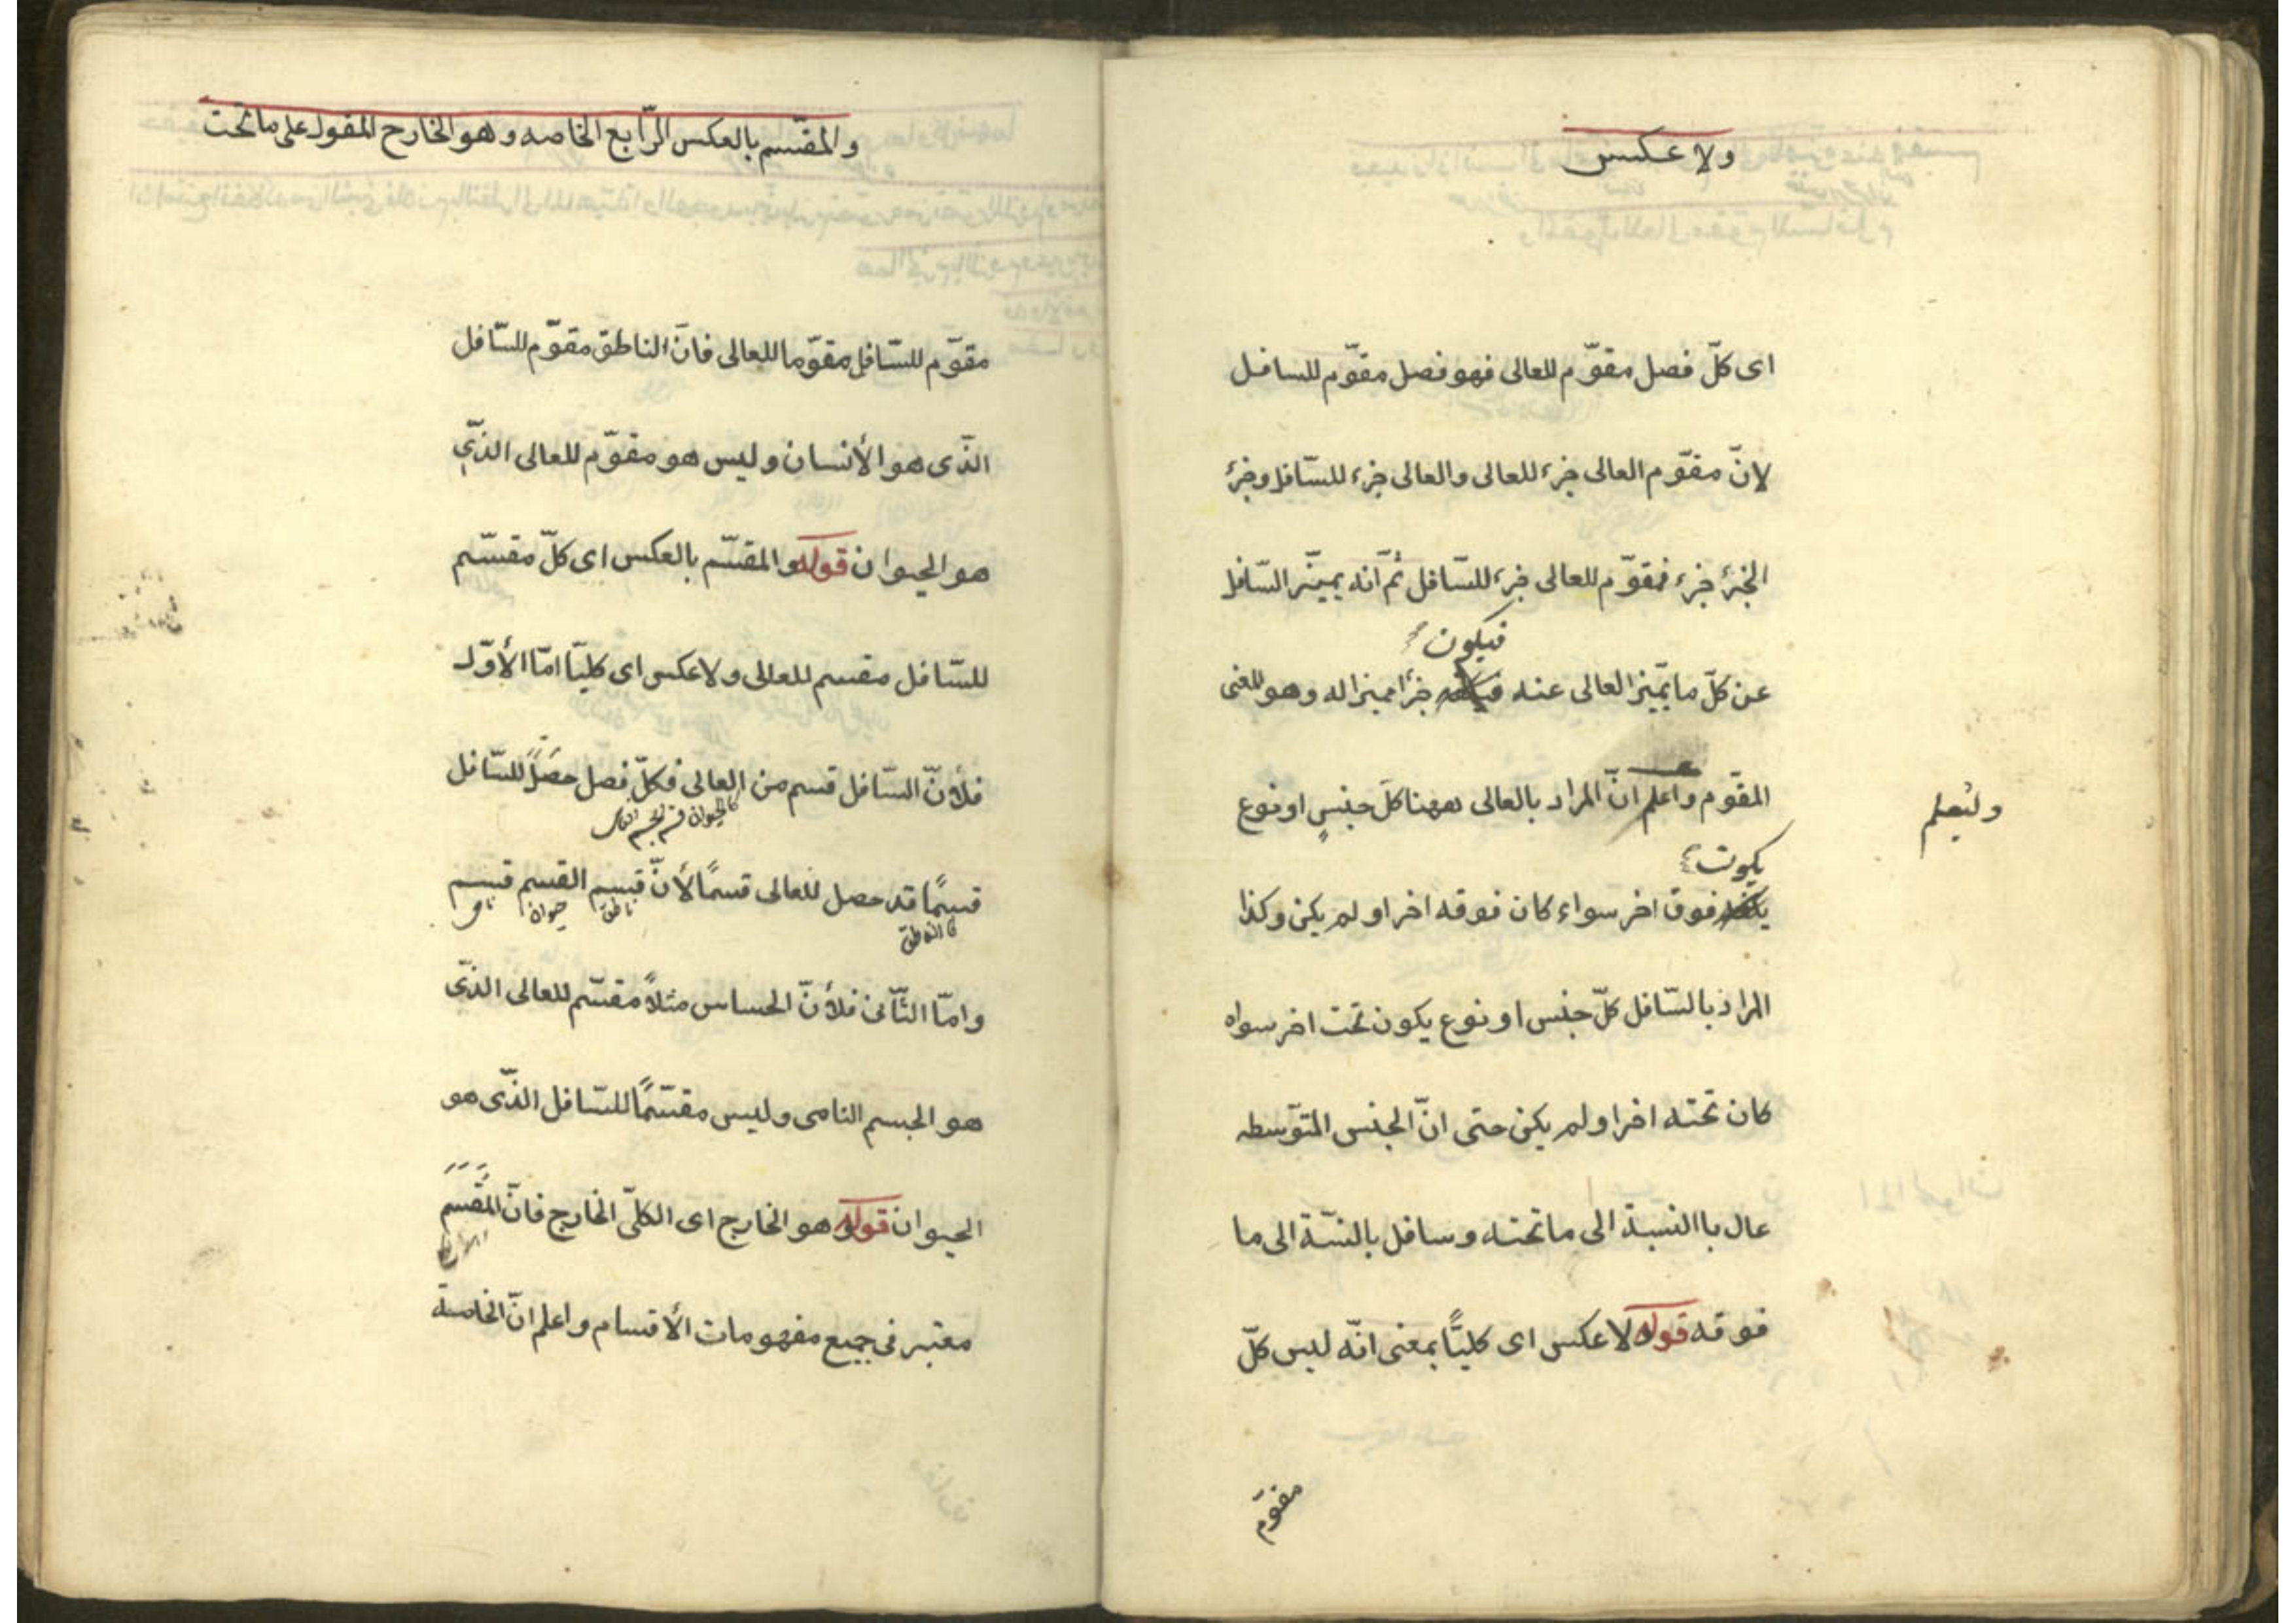 ولا عكس
اى كلّ فصل مقوّم للعالى فهو فصل مقوّم للسافل
لانّ مقوّم العالى جزء للعالى والعالى جزء للسّافل وجزء
الجزء جزء فمقوّم للعالى جزء للسّافل ثم انّه يميّز السّافل
فيكون
عن كلّ ما يميّز العالى عنه جزأ مميزا له وهو المعنى
المقوّم واعلم انّ المراد بالعالى ههنا كلّ جنسٍ او نوع
وليعلم
يكون
فوق اخر سواء كان فوقه اخر او لم يكن وكذا
المراد بالسّافل كلّ جنس او نوع يكون تحت اخر سواء
كان تحته اخر او لم يكن حتى انّ الجنس المتوّسطه
عال باالنسبة الى ما تحته وسافل بالنسّبة الى ما
فوقه قوله ولا عكس اى كليّاً بمعنى انّه ليس كلّ
مقوّم
والمقسّم بالعكس الرّابع الخاصه وهو الخارج المقول على ما تحت
مقوّم للسّافل مقوّما للعالى فانّ الناطق مقوّم للسّافل
الذّى هو الأنسان وليس هو مقوّم للعالى الذّي
هو الحيوان قوله والمقسّم بالعكس اى كلّ مقسّم
للسّافل مقسم للعالى ولا عكس اى كليّا امّا الأوّل
فلأنّ السّافل قسم من العالى فكلّ فصل حصل للسّافل
كالحيوان قسم الجسم
قسمًا قد حصل للعالى قسمًا لأنّ قسم القسم قسم
ناطق حيوان
كالناطق
وامّا الثّانى فلأنّ الحساس مثلاً مقسّم للعالى الذّى
هو الجسم النامى وليس مقسّمًا للسّافل الذّى هو
الحيوان قوله وهو الخارج اى الكلّى الخارج فانّ المُقَسَم
معتبر فى جميع مفهومات الأقسام واعلم انّ الخاصة